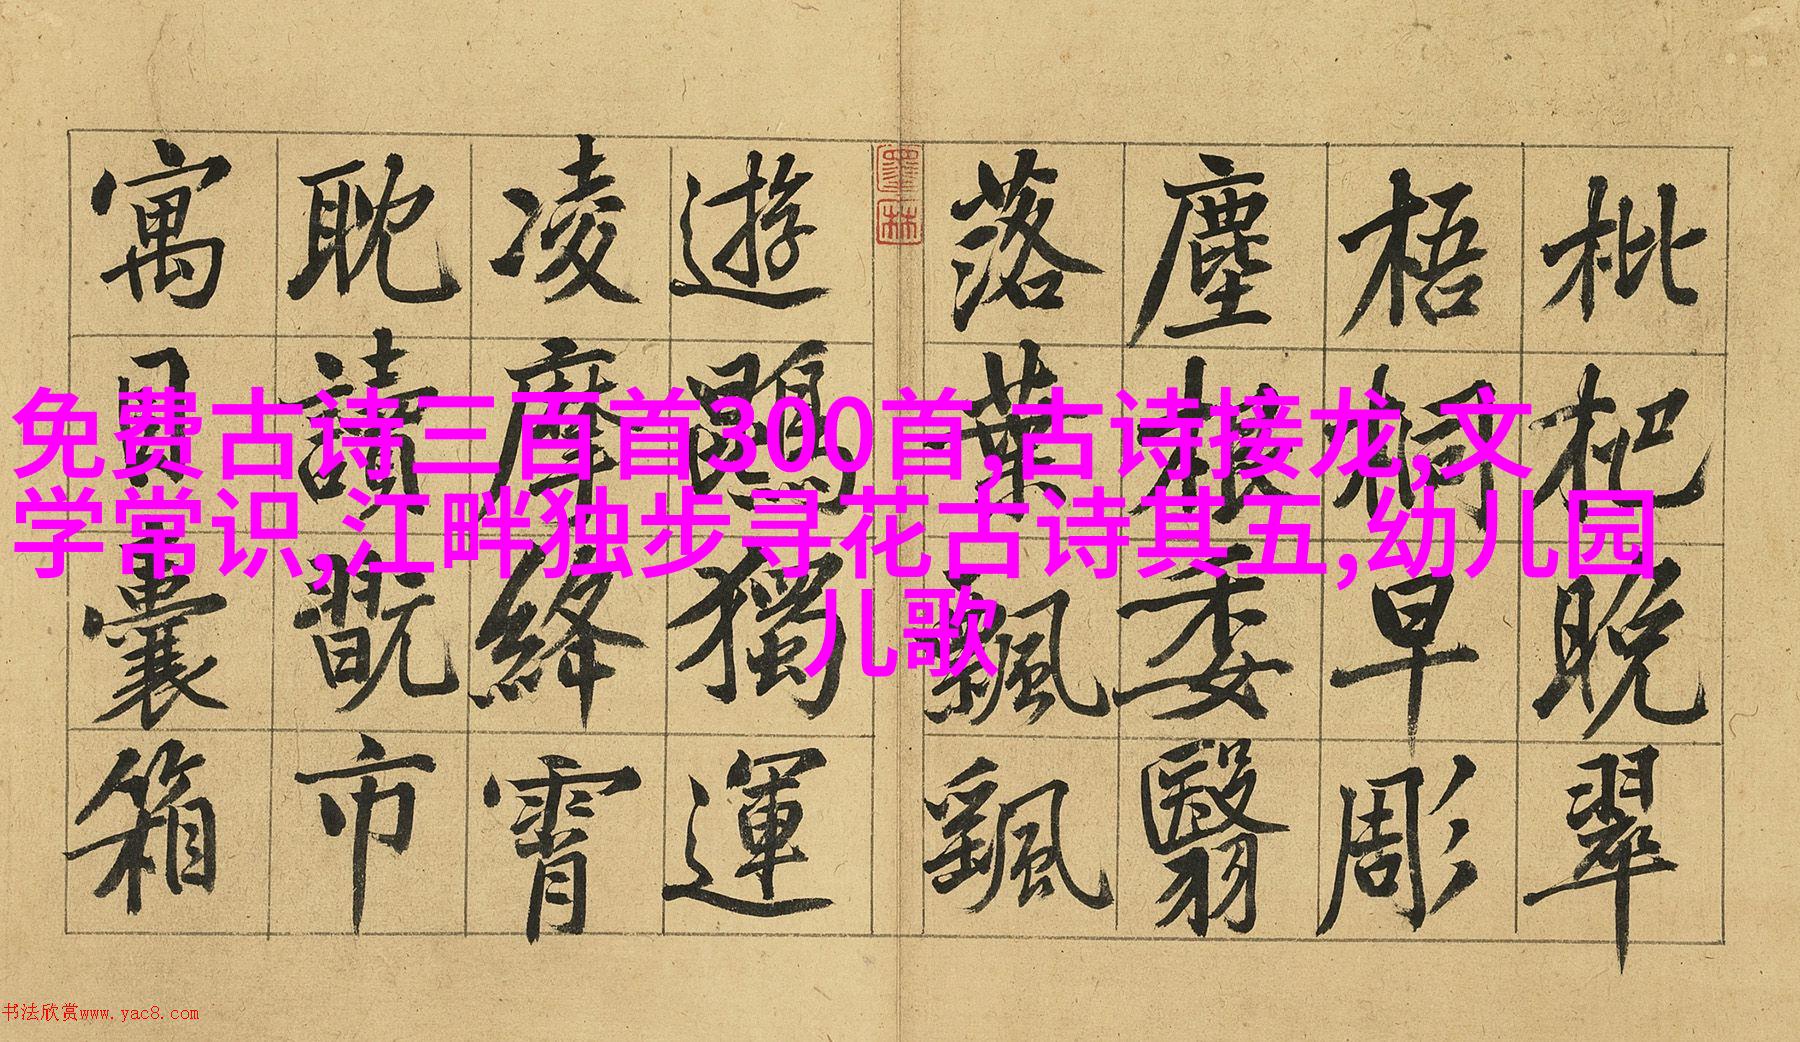 枇杷晚翠
梧桐早彫
塵根委翳
落葉飄颻
墨林
遊鵾獨運
凌摩絳霄
耽讀翫市
寓目囊箱
免费古诗三百首300首,古诗接龙,文
学常识,江畔独步寻花古诗其五,幼儿园
儿歌
书法欣赏www.yac8.com